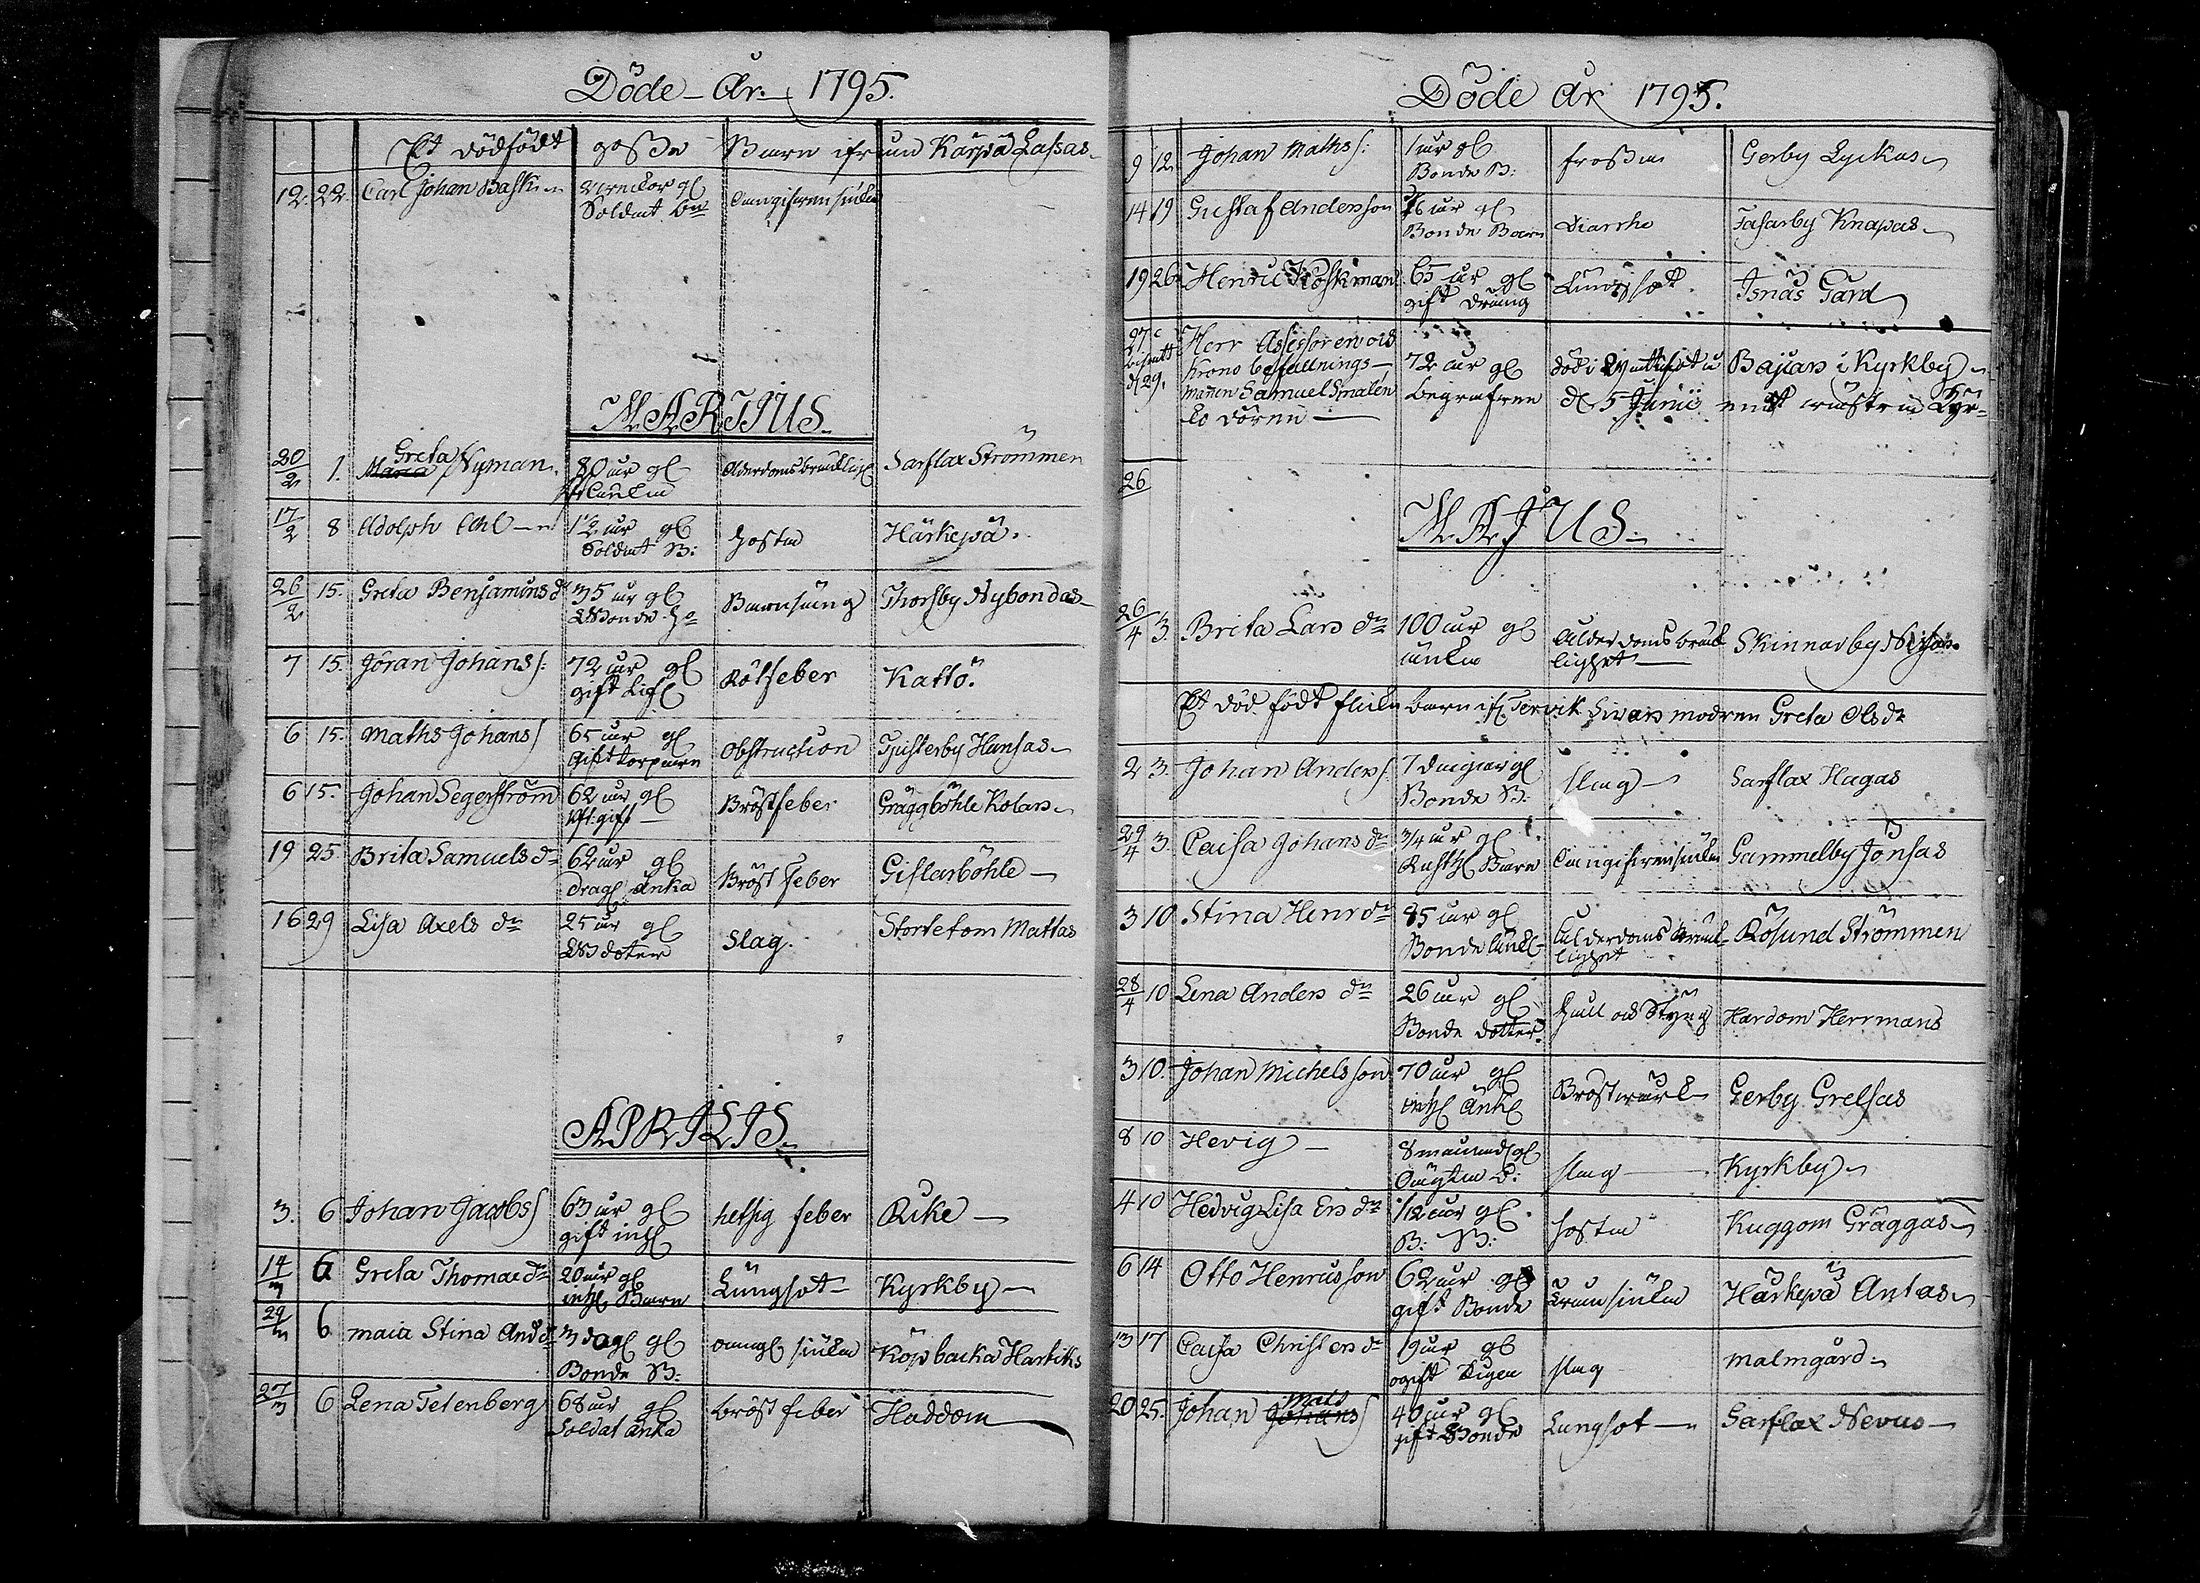 Döde År 1795.
Et dödfödt gosse Barn ifrån Kårpå Lassas
12. 22. Carl Johan Bask 2 veckor gl
Soldat
MARTIUS
20/2 1. Greta Nyman 80 år gl Ålderdoms bräcklig Sarflax Strömmen
Maria
Enka
17/2 8 Adolph 1/2 år gl hosta Härkepä.
Soldat B:
26/2 15. Greta Benjamins dr 35 år gl Barnsäng Thorsby Nybondas
Bonde H
7 15. Jöran Johans s: 72 år gl Rötfeber Kattö.
gift
6 15. Maths Johans s 65 år gl Obstruction Tjusterby Hansas
Gift torpare
6 15. Johan Segerström 62 år gl Bröstfeber Gräggböhle Kolars
gift
19 25. Brita Samuels dr 62 år gl Bröst feber Gislarböhle
Drag Änka
16 29 Lisa Axels dr 25 år gl Slag. Stortetom Mattas
B doter
APRILIS
3. 6 Johan Jacobs s 63 år gl hetsig feber Rike
gift inh
14/3 6 Greta Thomae dr 20 år gl Lungsot Kyrkby
inh Barn
29/3 6 Maia Stina And dr 3 dag gl Köpbacka Hartiks
Bonde B:
27/3 6 Lena Tetenberg 68 år gl bröst feber Haddom
Soldat Änka
Döde År 1795.
9 12 Johan Maths s: 1 år gl frossa Gerby Lyckas
Bonde B:
14 19 Gustaf Anderson år gl Diarrhe Tasarby Knapas
Bonde Barn
19 26 Henric Koskman 65 år gl Lungsot Isnäs Gård
gift dräng
27
d 29. Herr Assessoren och
Krono befallnings- 72 år gl död i Bajars i Kyrkby
mannen Samuel Smalen begrafven d 5 Junii
26
MAJUS
26/4 3. Brita Lars dr 100 år gl Ålderdoms bräck Skinnarby
änka lighet
Et död född flicke barn if Tervik Sivars modren Greta Ols dr
2 3. Johan Anders s. 7 dagar gl slag Sarflax Hagas
Bonde B:
29/4 3. Caisa Johans dr 3/4 år gl Gammelby Jonsas
Barn
3 10 Stina Henr dr 85 år gl ålderdoms bräck- Rösund Strömmen
Bonde änk lighet
28/4 10 Lena Anders dr 26 år gl håll och Styng Hardom Herrmans
Bonde dotter
3 10. Johan Michelsson 70 år gl Bröstvärk Gerby Grelsas
inh Änk
8 10 Hevig 8 månad gl slag Kyrkby
Oägta B:
4 10 Hedvig Lisa Ers dr 1/12 år gl hosta Kuggom Gräggas
B: B:
6 14 Otto Henricsson 62 år gl Härkepä Antas
gift Bonde
13 17 Caisa Christers dr 19 år gl slag Malmgård
ogift Pigen
20 25. Johan Mats s 40 år gl Lungsot Sarflax Nevus
Johans
gift Bonde